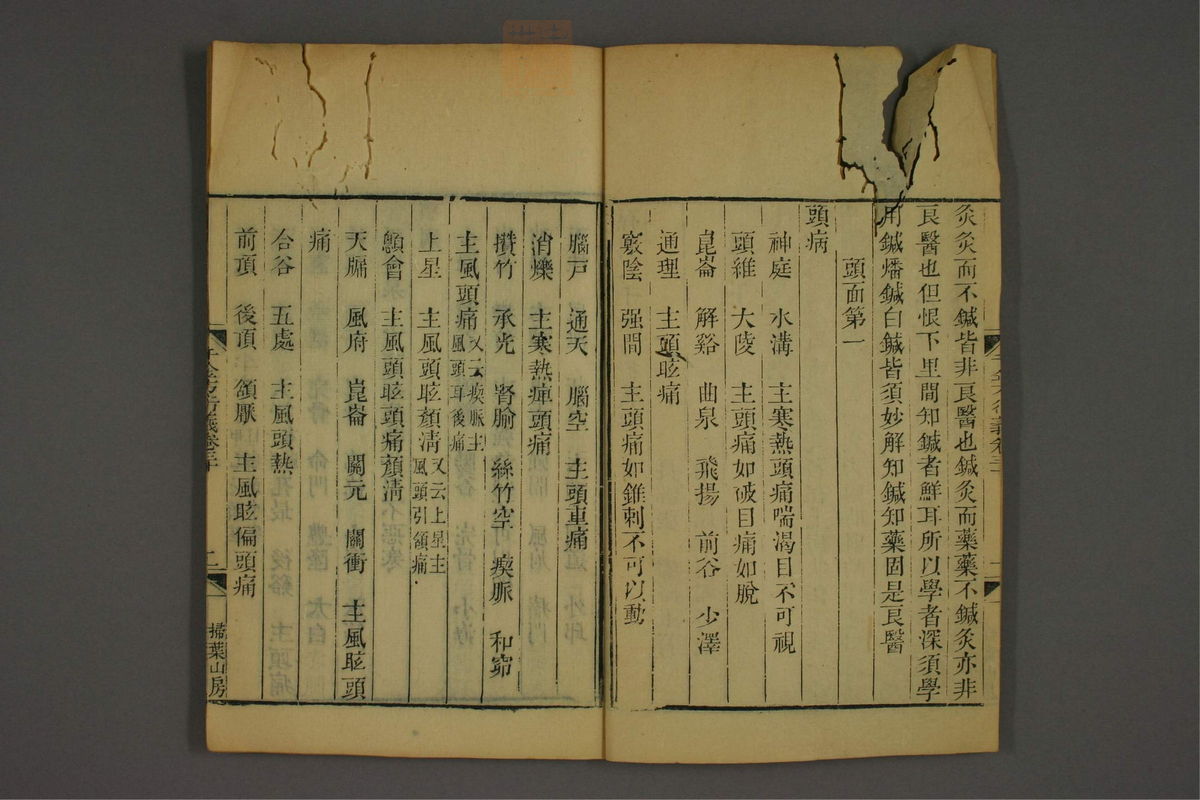 灸灸而不鍼皆非良醫也鍼灸而藥藥不鍼灸亦非
良醫也但恨下里間知鍼者鮮耳所以學者深須學
用鍼燔鍼白鍼皆須妙解知鍼知藥固是良醫
頭面第一
頭病
神庭 水溝 主寒熱頭痛喘渴目不可視
頭維 大陵 主頭痛如破目痛如脫
崑崙 解谿 曲泉 飛揚 前谷 少澤
通理 主頭眩痛
竅陰 强間 主頭痛如錐刺不可以動
腦戶 通天 腦空 主頭重痛
消爍 主寒熱痺頭痛
攢竹 承光 腎腧 絲竹空 瘈脈 和窌
主風頭痛又云瘈脈主風頭耳後痛
上星 主風頭眩顏淸又云上星主風頭引頷痛
顖會 主風頭眩頭痛顏淸
天牖 風府 崑崙 關元 關衝 主風眩頭
痛
合谷 五處 主風頭熱
前頂 後頂 頷厭 主風眩偏頭痛
千金方衍義卷三十 二 掃葉山房